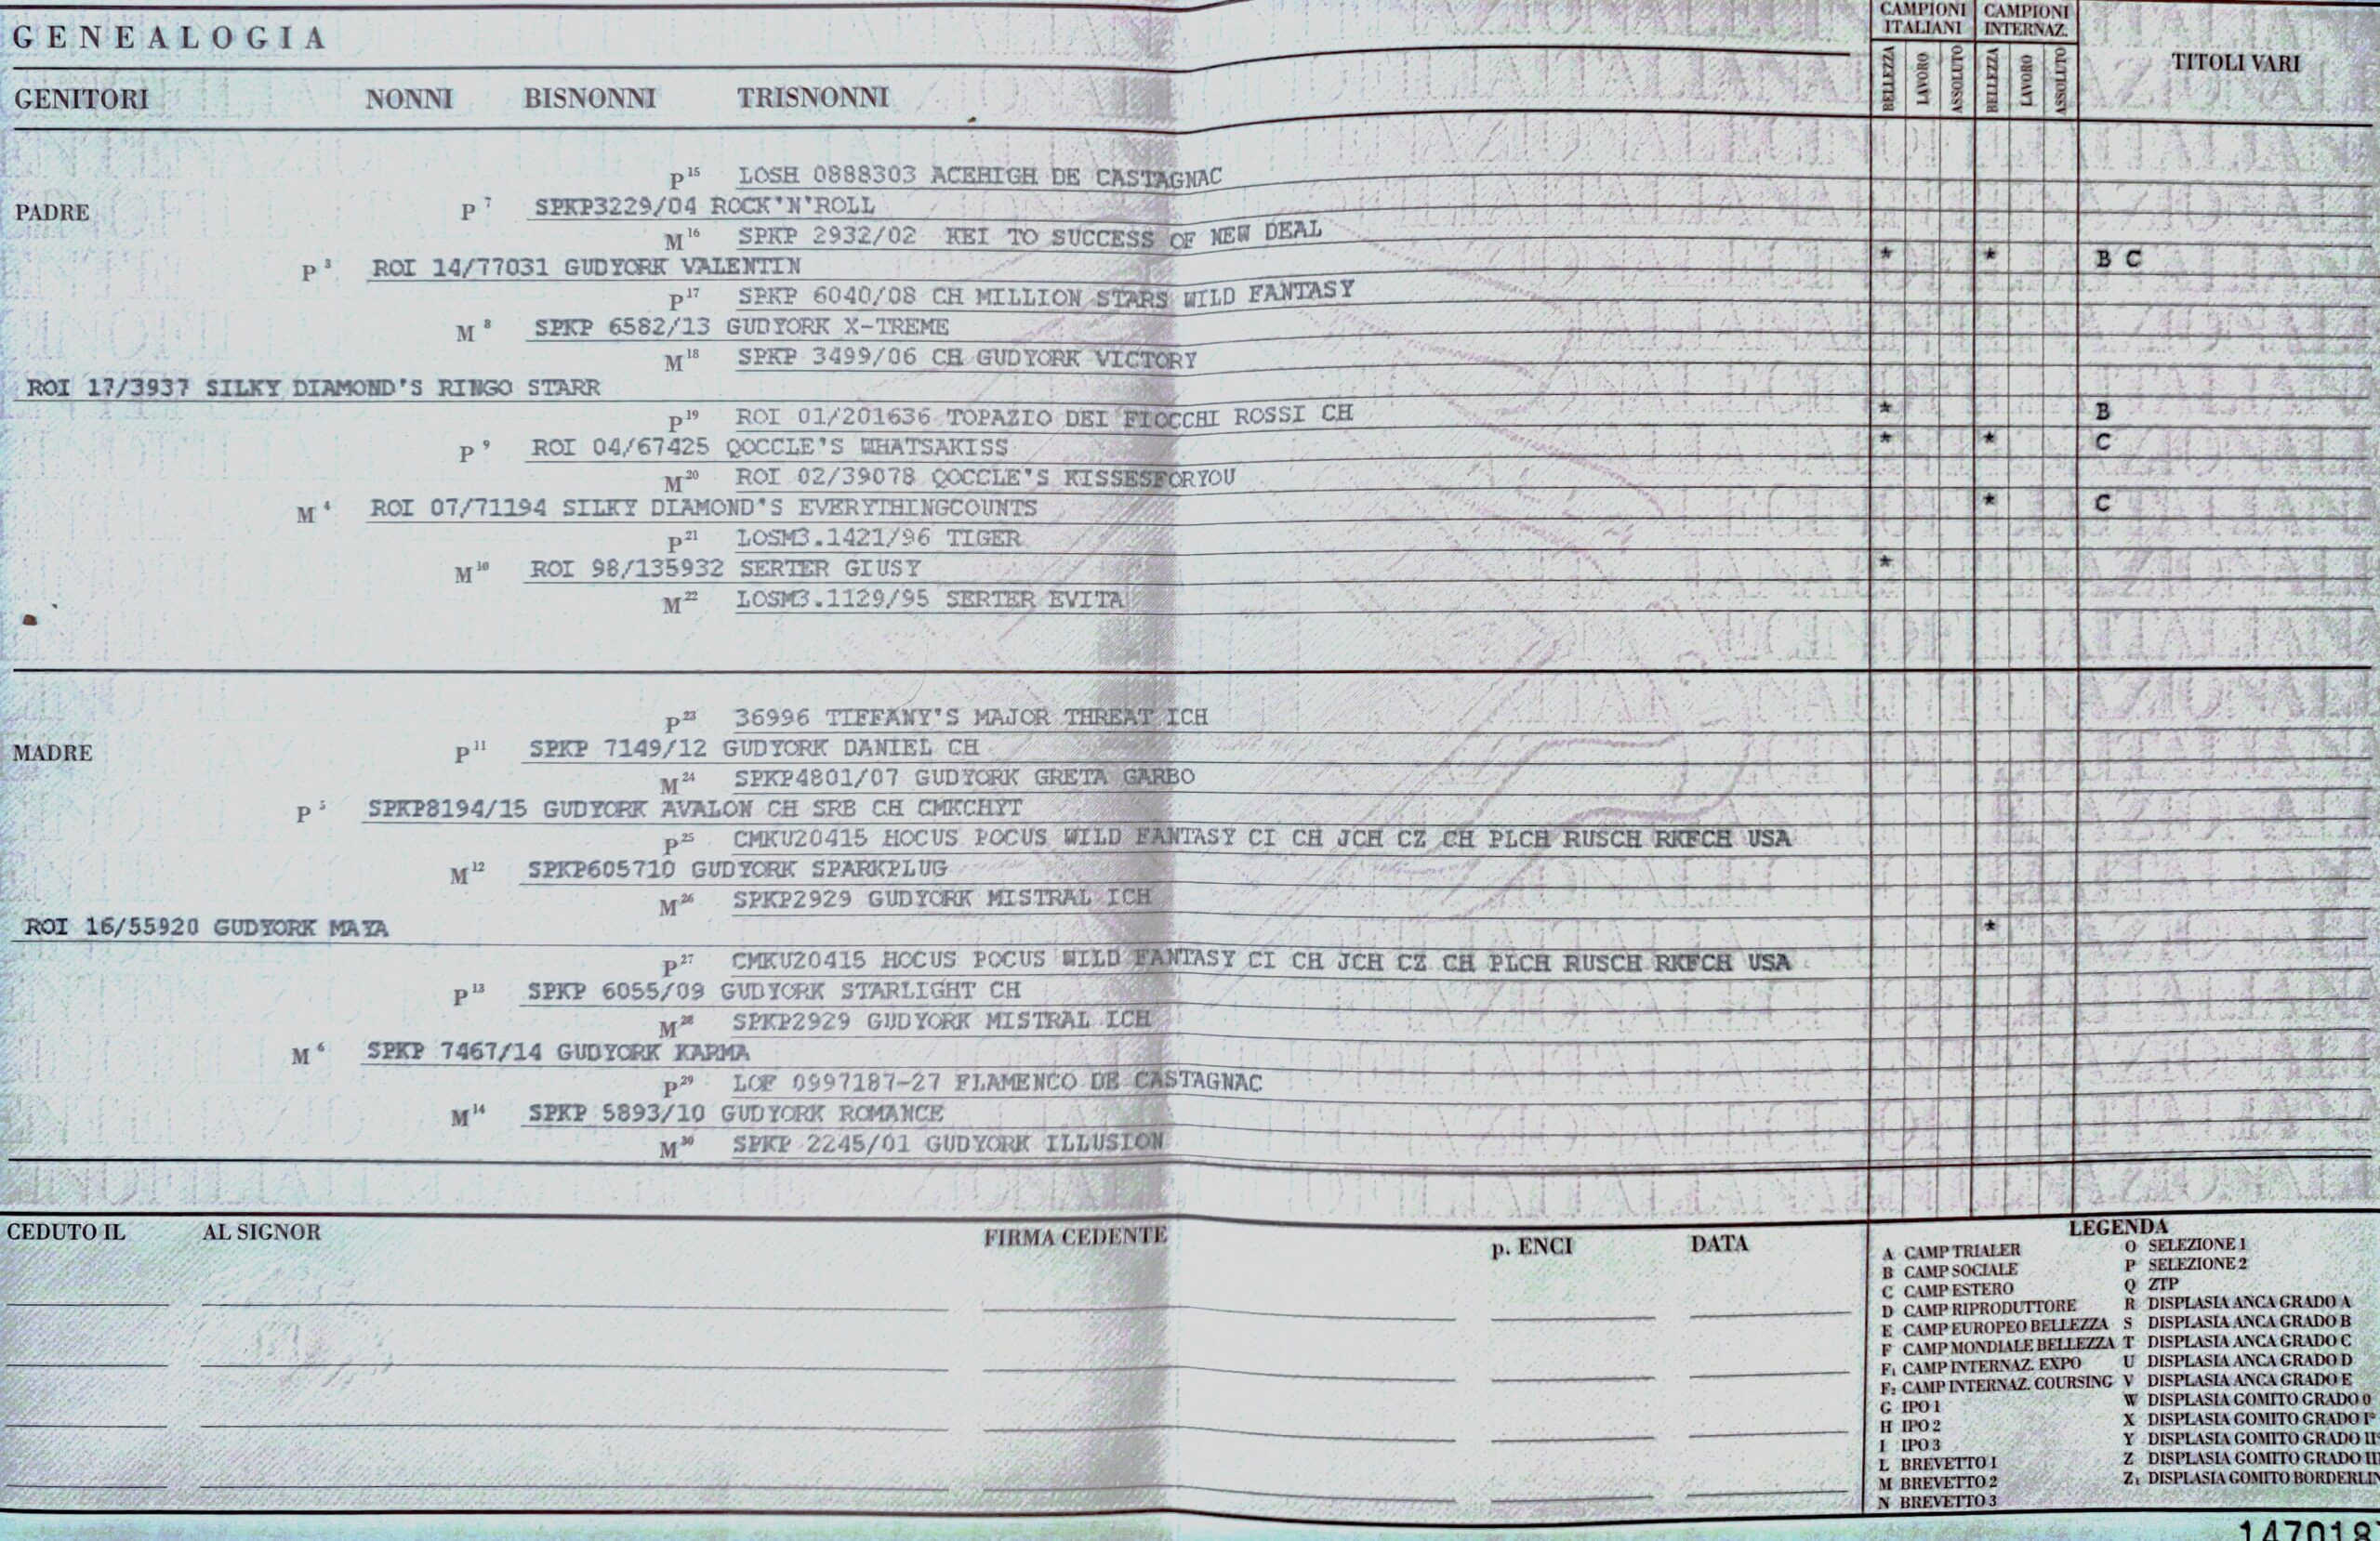 GENEALOGIA
CAMPIONI ITALIANI
CAMPIONI INTERNAZ.
BELLEZZA LAVORO ASSOLUTO BELLEZZA LAVORO ASSOLUTO
TITOLI VARI
GENITORI NONNI BISNONNI TRISNONNI
P15 LOSH 0888303 ACEHIGH DE CASTAGNAC
PADRE P7 SPKP3229/04 ROCK'N'ROLL
M16 SPKP 2932/02 KEI TO SUCCESS OF NEW DEAL
P3 ROI 14/77031 GUDYORK VALENTIN * * B C
P17 SPKP 6040/08 CH MILLION STARS WILD FANTASY
M8 SPKP 6582/13 GUDYORK X-TREME
M18 SPKP 3499/06 CH GUDYORK VICTORY
ROI 17/3937 SILKY DIAMOND'S RINGO STARR
P19 ROI 01/201636 TOPAZIO DEI FIOCCHI ROSSI CH * B
P9 ROI 04/67425 QOCCLE'S WHATSAKISS * * C
M20 ROI 02/39078 QOCCLE'S KISSESFORYOU
M4 ROI 07/71194 SILKY DIAMOND'S EVERYTHINGCOUNTS * C
P21 LOSM3.1421/96 TIGER
M10 ROI 98/135932 SERTER GIUSY *
M22 LOSM3.1129/95 SERTER EVITA
P23 36996 TIFFANY'S MAJOR THREAT ICH
MADRE P11 SPKP 7149/12 GUDYORK DANIEL CH
M24 SPKP4801/07 GUDYORK GRETA GARBO
P5 SPKP8194/15 GUDYORK AVALON CH SRB CH CMKCHYT
P25 CMKU20415 HOCUS POCUS WILD FANTASY CI CH JCH CZ CH PLCH RUSCH RKFCH USA
M12 SPKP605710 GUDYORK SPARKPLUG
M26 SPKP2929 GUDYORK MISTRAL ICH
ROI 16/55920 GUDYORK MAYA *
P27 CMKU20415 HOCUS POCUS WILD FANTASY CI CH JCH CZ CH PLCH RUSCH RKFCH USA
P13 SPKP 6055/09 GUDYORK STARLIGHT CH
M28 SPKP2929 GUDYORK MISTRAL ICH
M6 SPKP 7467/14 GUDYORK KARMA
P29 LOF 0997187-27 FLAMENCO DE CASTAGNAC
M14 SPKP 5893/10 GUDYORK ROMANCE
M30 SPKP 2245/01 GUDYORK ILLUSION
CEDUTO IL AL SIGNOR FIRMA CEDENTE p. ENCI DATA
LEGENDA
A CAMP TRIALER
B CAMP SOCIALE
C CAMP ESTERO
D CAMP RIPRODUTTORE
E CAMP EUROPEO BELLEZZA
F CAMP MONDIALE BELLEZZA
F1 CAMP INTERNAZ. EXPO
F2 CAMP INTERNAZ. COURSING
G IPO 1
H IPO 2
I IPO 3
L BREVETTO 1
M BREVETTO 2
N BREVETTO 3
O SELEZIONE 1
P SELEZIONE 2
Q ZTP
R DISPLASIA ANCA GRADO A
S DISPLASIA ANCA GRADO B
T DISPLASIA ANCA GRADO C
U DISPLASIA ANCA GRADO D
V DISPLASIA ANCA GRADO E
W DISPLASIA GOMITO GRADO 0
X DISPLASIA GOMITO GRADO I°
Y DISPLASIA GOMITO GRADO II
Z DISPLASIA GOMITO GRADO III
Z1 DISPLASIA GOMITO BORDERLIN